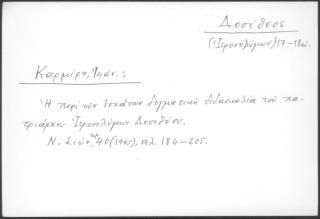 Δοσίθεος
(Ἱεροσολύμων) 17-18αι.
Καρμίρη, Ἰωάν.:
Ἡ περὶ τῶν ἐσχάτων δογματικὴ διδασκαλία τοῦ πα-
τριάρχου Ἱεροσολύμων Δοσιθέου.
Ν. Σιών, 40 (1945), σελ. 184-205.